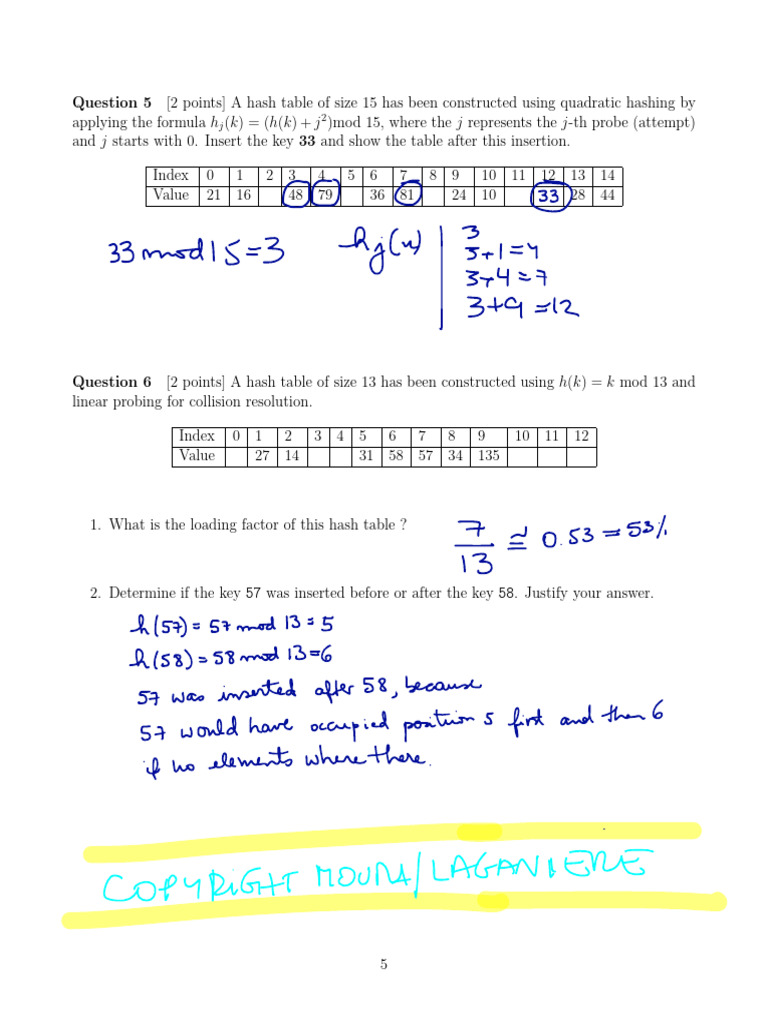 Question 5 [2 points] A hash table of size 15 has been constructed using quadratic hashing by
applying the formula hj(k) = (h(k) + j²)mod 15, where the j represents the j-th probe (attempt)
and j starts with 0. Insert the key 33 and show the table after this insertion.
Index 0 1 2 3 4 5 6 7 8 9 10 11 12 13 14
Value 21 16 48 79 36 81 24 10 33 28 44
33 mod 15 = 3
hj(x)
3
3+1=4
3+4=7
3+9=12
Question 6 [2 points] A hash table of size 13 has been constructed using h(k) = k mod 13 and
linear probing for collision resolution.
Index 0 1 2 3 4 5 6 7 8 9 10 11 12
Value 27 14 31 58 57 34 135
1. What is the loading factor of this hash table ?
7/13 ≅ 0.53 = 53%
2. Determine if the key 57 was inserted before or after the key 58. Justify your answer.
h(57) = 57 mod 13 = 5
h(58) = 58 mod 13 = 6
57 was inserted after 58, because
57 would have occupied position 5 first and then 6
if no elements where there.
COPYRIGHT MOURA/LAGANIERE
5